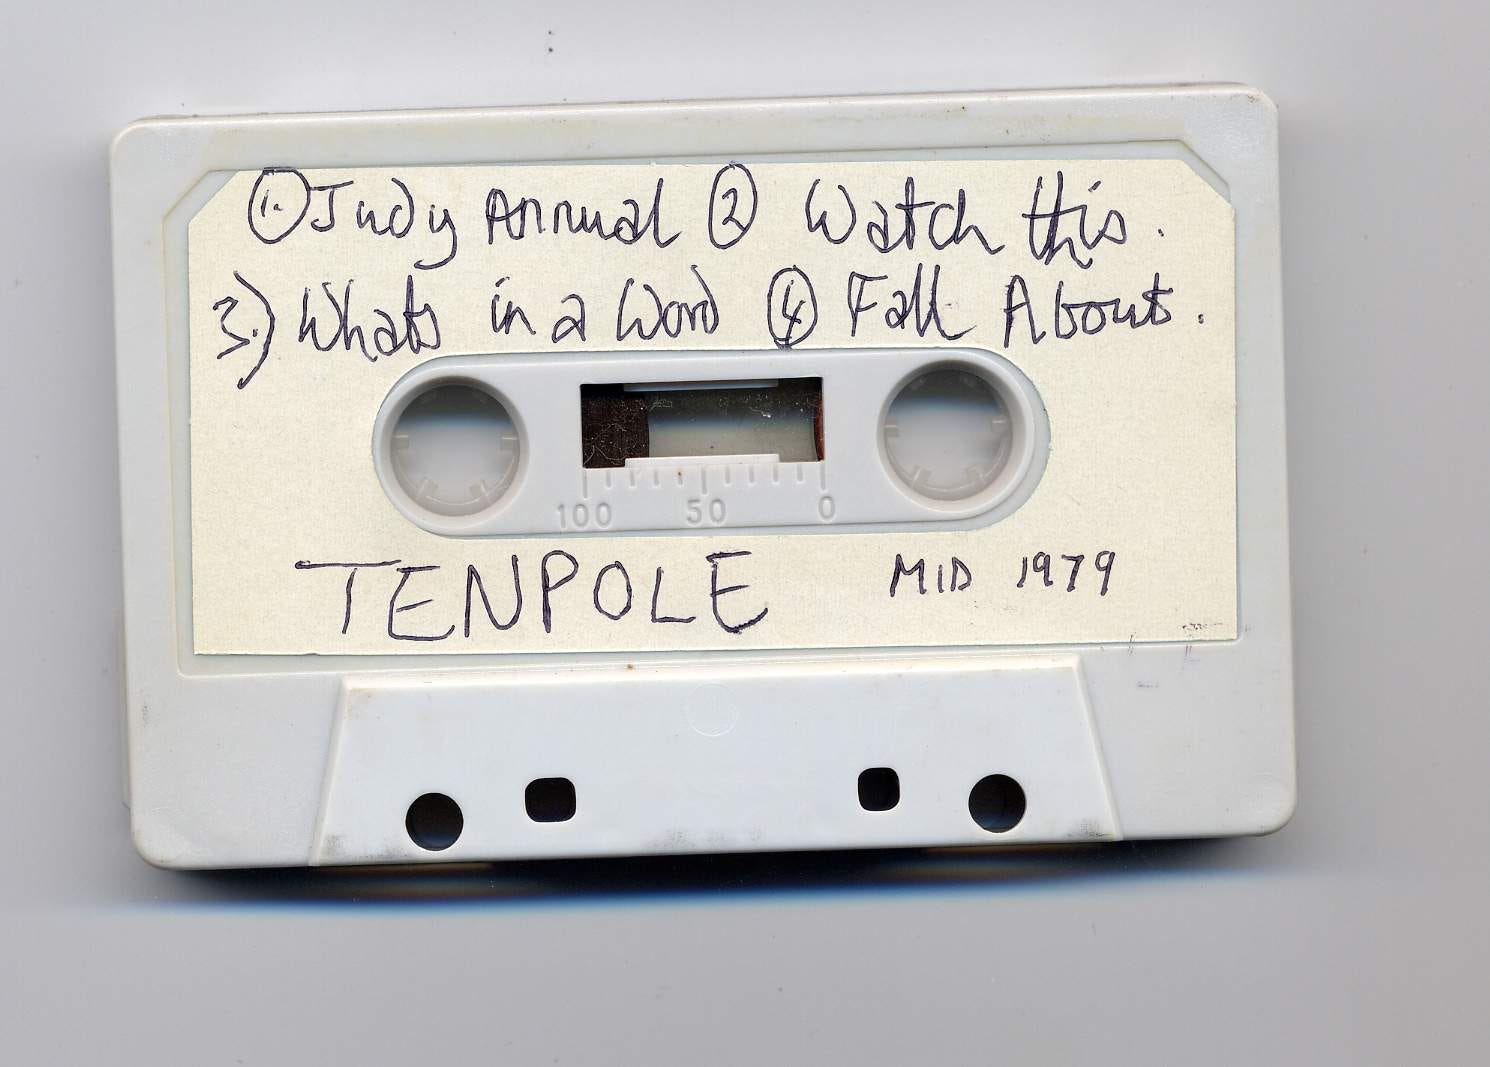 1. Judy Annual 2 Watch this.
3.) Whats in a Word 4 Fall About.
100 50 0
TENPOLE MID 1979